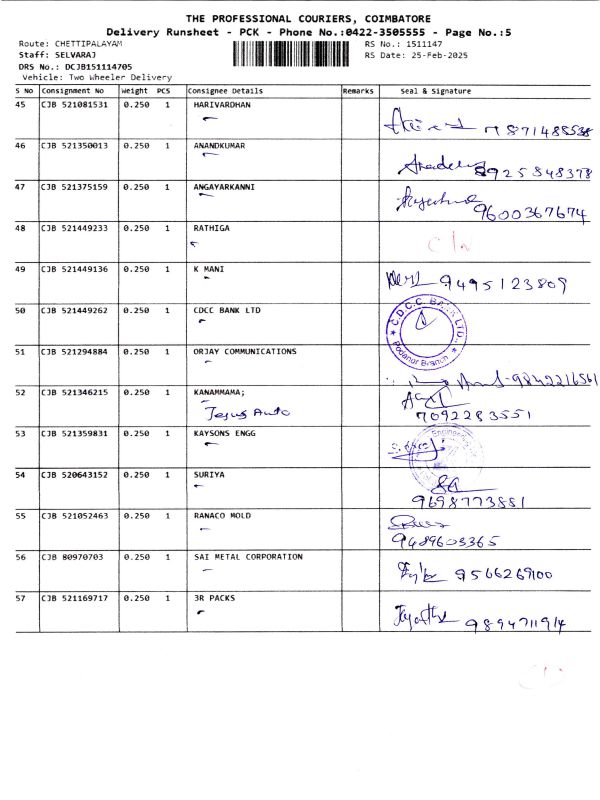 THE PROFESSIONAL COURIERS, COIMBATORE
Delivery Runsheet - PCK - Phone No.:0422-3505555 - Page No.:5
Route: CHETTIPALAYAM RS No.: 1511147
Staff: SELVARAJ RS Date: 25-Feb-2025
DRS No.: DCJB151114705
Vehicle: Two Wheeler Delivery
S No Consignment No Weight PCS Consignee Details Remarks Seal & Signature
45 CJB 521081531 0.250 1 HARIVARDHAN
46 CJB 521350013 0.250 1 ANANDKUMAR
8925848378
47 CJB 521375159 0.250 1 ANGAYARKANNI
9600367674
48 CJB 521449233 0.250 1 RATHIGA
49 CJB 521449136 0.250 1 K MANI
9495123809
50 CJB 521449262 0.250 1 CDCC BANK LTD
C.D.C.C. BANK LTD.,
Podanur Branch
51 CJB 521294884 0.250 1 ORJAY COMMUNICATIONS
9842216561
52 CJB 521346215 0.250 1 KANAMMAMA;
Jesus Auto
7092283551
53 CJB 521359831 0.250 1 KAYSONS ENGG
Engineering
54 CJB 520643152 0.250 1 SURIYA
9698773881
55 CJB 521052463 0.250 1 RANACO MOLD
9489603365
56 CJB 80970703 0.250 1 SAI METAL CORPORATION
9566269100
57 CJB 521169717 0.250 1 3R PACKS
9894711914